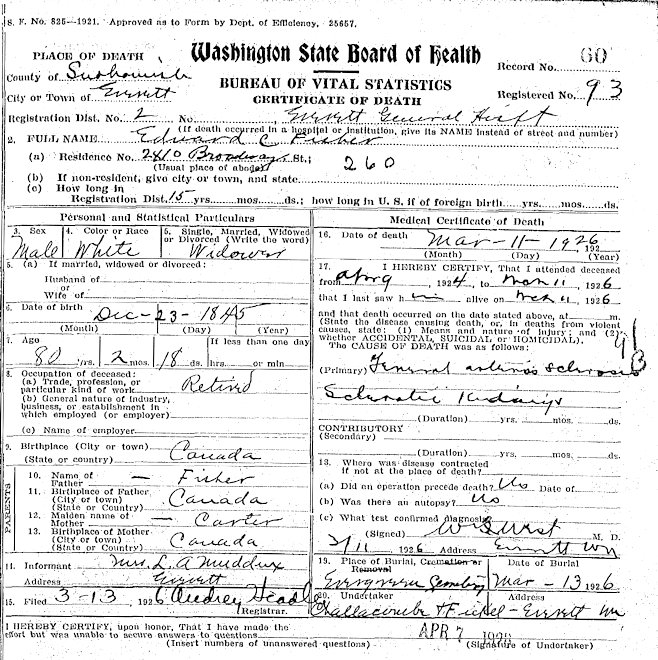 S. F. No. 825—1921. Approved as to Form by Dept. of Efficiency, 25657.
PLACE OF DEATH
Washington State Board of Health
County of Snohomish
Record No. 60
BUREAU OF VITAL STATISTICS
City or Town of Everett
CERTIFICATE OF DEATH
Registered No. 93
Registration Dist. No. 2 No. Everett General Hospt
(If death occurred in a hospital or institution, give its NAME instead of street and number)
2. FULL NAME Edward C. Fisher
(a) Residence No. 2410 Broadway St.; 260
(Usual place of abode)
(b) If non-resident, give city or town, and state
(c) How long in
Registration Dist. 15 yrs. mos. ds.; how long in U. S. if of foreign birth yrs. mos. ds.
Personal and Statistical Particulars
3. Sex
4. Color or Race
5. Single, Married, Widowed or Divorced (Write the word)
Male White Widower
5. (a) If married, widowed or divorced:
Husband of
or
Wife of
6. Date of birth Dec-23-1845
(Month) (Day) (Year)
7. Age If less than one day
80 yrs. 2 mos. 18 ds. hrs. or min.
8. Occupation of deceased:
(a) Trade, profession, or
particular kind of work Retired
(b) General nature of industry,
business, or establishment in
which employed (or employer)
(c) Name of employer
9. Birthplace (City or town)
(State or country) Canada
PARENTS
10. Name of
Father — Fisher
11. Birthplace of Father
(City or town)
(State or Country) Canada
12. Maiden name of
Mother — Carter
13. Birthplace of Mother
(City or town)
(State or Country) Canada
14. Informant Mrs. L. A. Maddux
Address Everett
15. Filed 3-13, 1926 Audrey
Registrar.
Medical Certificate of Death
16. Date of death Mar-11-1926, 192
(Month) (Day) (Year)
17. I HEREBY CERTIFY, That I attended deceased
from Apr 9 1924, to Mch 11, 1926
that I last saw him alive on Mch 11, 1926
and that death occurred on the date stated above, at m.
(State the disease causing death, or, in deaths from violent
causes, state: (1) Means and nature of injury; and (2)
whether ACCIDENTAL, SUICIDAL or HOMICIDAL).
The CAUSE OF DEATH was as follows:
91B
(Primary) General arterio sclerosis
Sclerotic Kidneys
(Duration) yrs. mos. ds.
CONTRIBUTORY
(Secondary)
(Duration) yrs. mos. ds.
18. Where was disease contracted
if not at the place of death?
(a) Did an operation precede death? No Date of
(b) Was there an autopsy? No
(c) What test confirmed diagnosis
(Signed) W S West M. D.
3/11 1926 Address Everett Wn
19. Place of Burial, Cremation or Removal Date of Burial
Evergreen Cemetery Mar-13 1926
20. Undertaker Address
Challacombe & Fickel - Everett Wn
I HEREBY CERTIFY, upon honor, That I have made the
effort but was unable to secure answers to questions
(Insert numbers of unanswered questions)
APR 7 1926
(Signature of Undertaker)